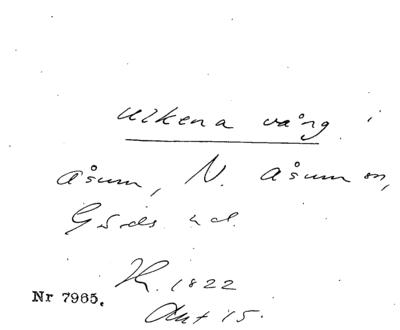 Ulkena vång i
Åsum, N. Åsum sn,
Gärds hd.
1822
Nr 7965.
Akt 15.